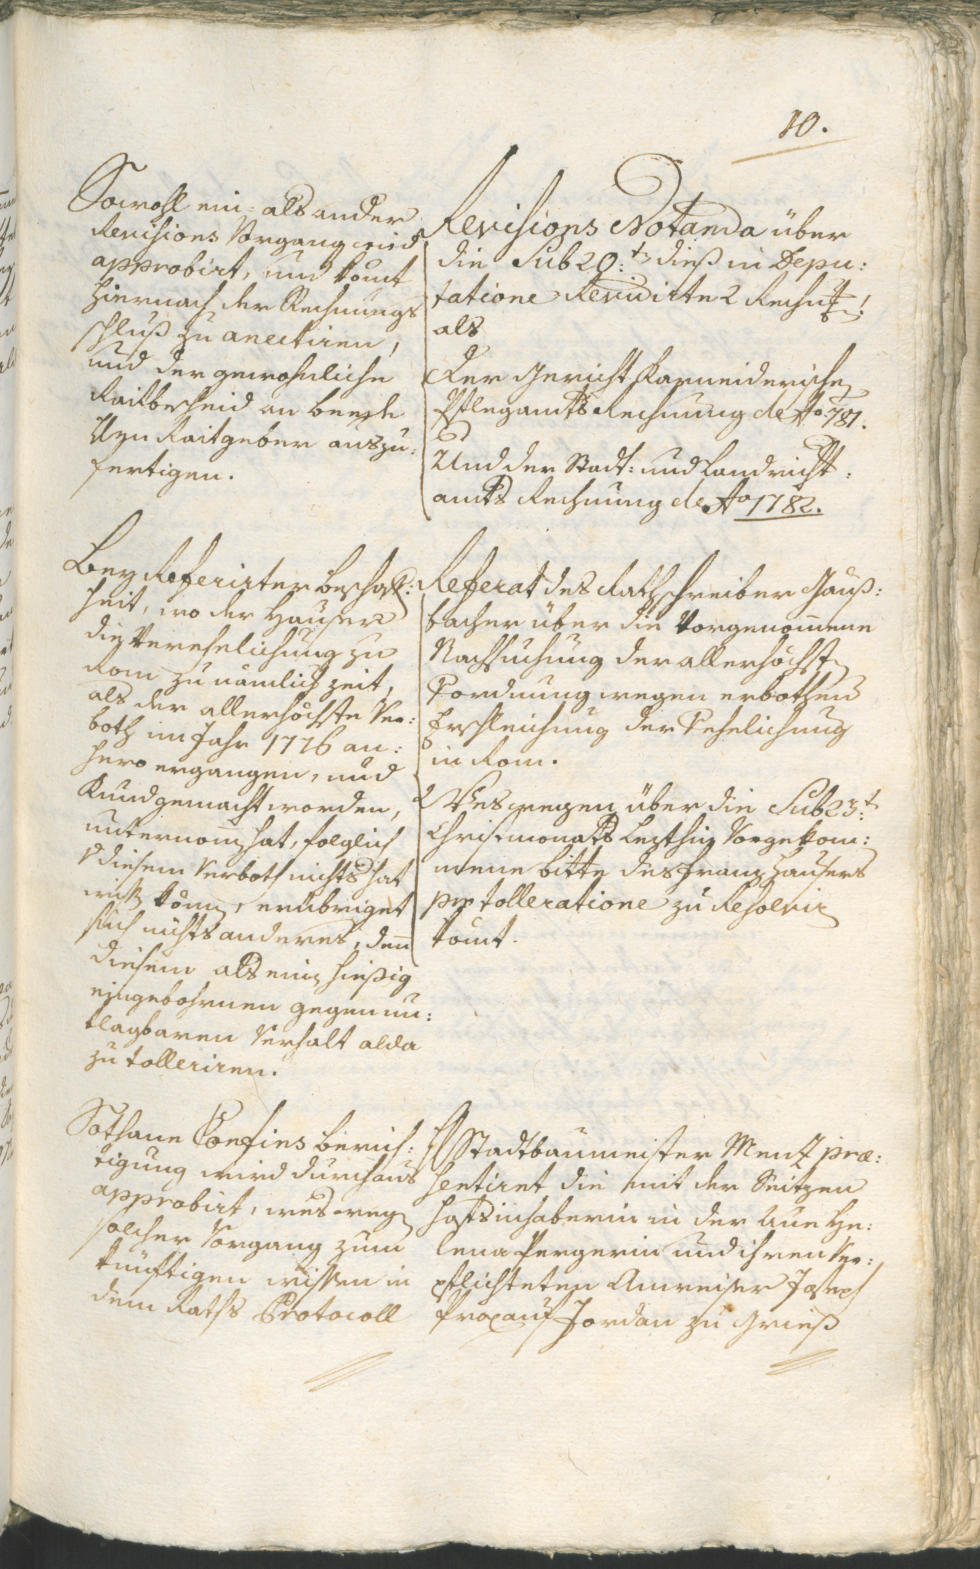 10.
Sowohl ein- als ander
Revisions Vorgang wird
approbirt, und komt
hiernach der Rechnungs
schluß zu anectiren,
und der gewohnliche
Raitbescheid an beede
Hrn Raitgeber auszu:
fertigen.
Revisions Notanda über
die Sub 20:t dieß in Depu:
tatione Revidirte 2 Rechng:
als
Der Gericht Karneiderischen
Pflegamts Rechnung de Ao 781.
Und der Stadt: und Landricht:
amts Rechnung de Ao 1782.
Bey Referirter beschaff:
heit, wo der Hauser
die Verehelichung zu
Rom zu nämlich zeit,
als der allerhöchste Ver:
both im Jahr 1776 an:
hero ergangen, und
Kundgemacht worden,
unternom̄ hat, folglich
diesem Verboth nichts hat
wissen könn̄, erübriget
sich nichts anderes, den̄
diesem als ein hießig
eingebohrnen gegen un:
klagbaren Verhalt alda
zu tolleriren.
Referat des Rathschreiber Gauß:
bacher über die Vorgenom̄ene
Nachsuchung der allerhöchsten
Verordnung wegen verbothener
Erschleichung der Verehelichung
in Rom.
Weswegen über die Sub 23:t
Christmonats lezthin Vorgekom:
mene bitte des Franz Hausers
pro tolleratione zu Resolvirn
komt.
Sothane Confins berich:
tigung wird durchaus
approbirt, weswegen
solcher Vorgang zum
künftigen wissen in
dem Raths Protocoll
Stadtbaumeister Menz præ:
sentiret die mit der
hofs inhaberin in der Aue He:
lena Pergerin und ihren Ver:
pflichteten Anweiser Joseph
auf Jordan zu Grieß